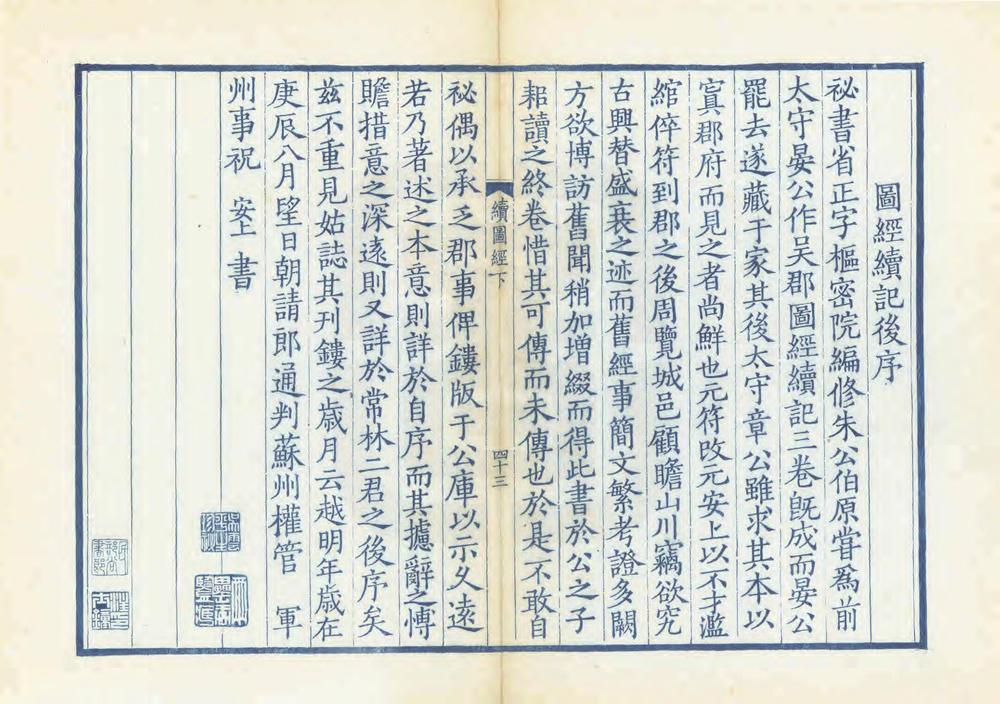 圖經續記後序
祕書省正字樞密院編修朱公伯原嘗爲前
太守晏公作吴郡圖經續記三卷旣成而晏公
罷去遂藏于家其後太守章公雖求其本以
寘郡府而見之者尚鮮也元符改元安上以不才濫
綰倅符到郡之後周覽城邑顧瞻山川竊欲究
古興替盛衰之迹而舊經事簡文繁考證多闕
方欲博訪舊聞稍加增綴而得此書於公之子
耜讀之終卷惜其可傳而未傳也於是不敢自
續圖經下
四十三
祕偶以承乏郡事俾鏤版于公庫以示久遠
若乃著述之本意則詳於自序而其攄辭之博
贍措意之深遠則又詳於常林二君之後序矣
兹不重見姑誌其刊鏤之歲月云越明年歲在
庚辰八月望日朝請郎通判蘇州權管 軍
州事祝 安上 書